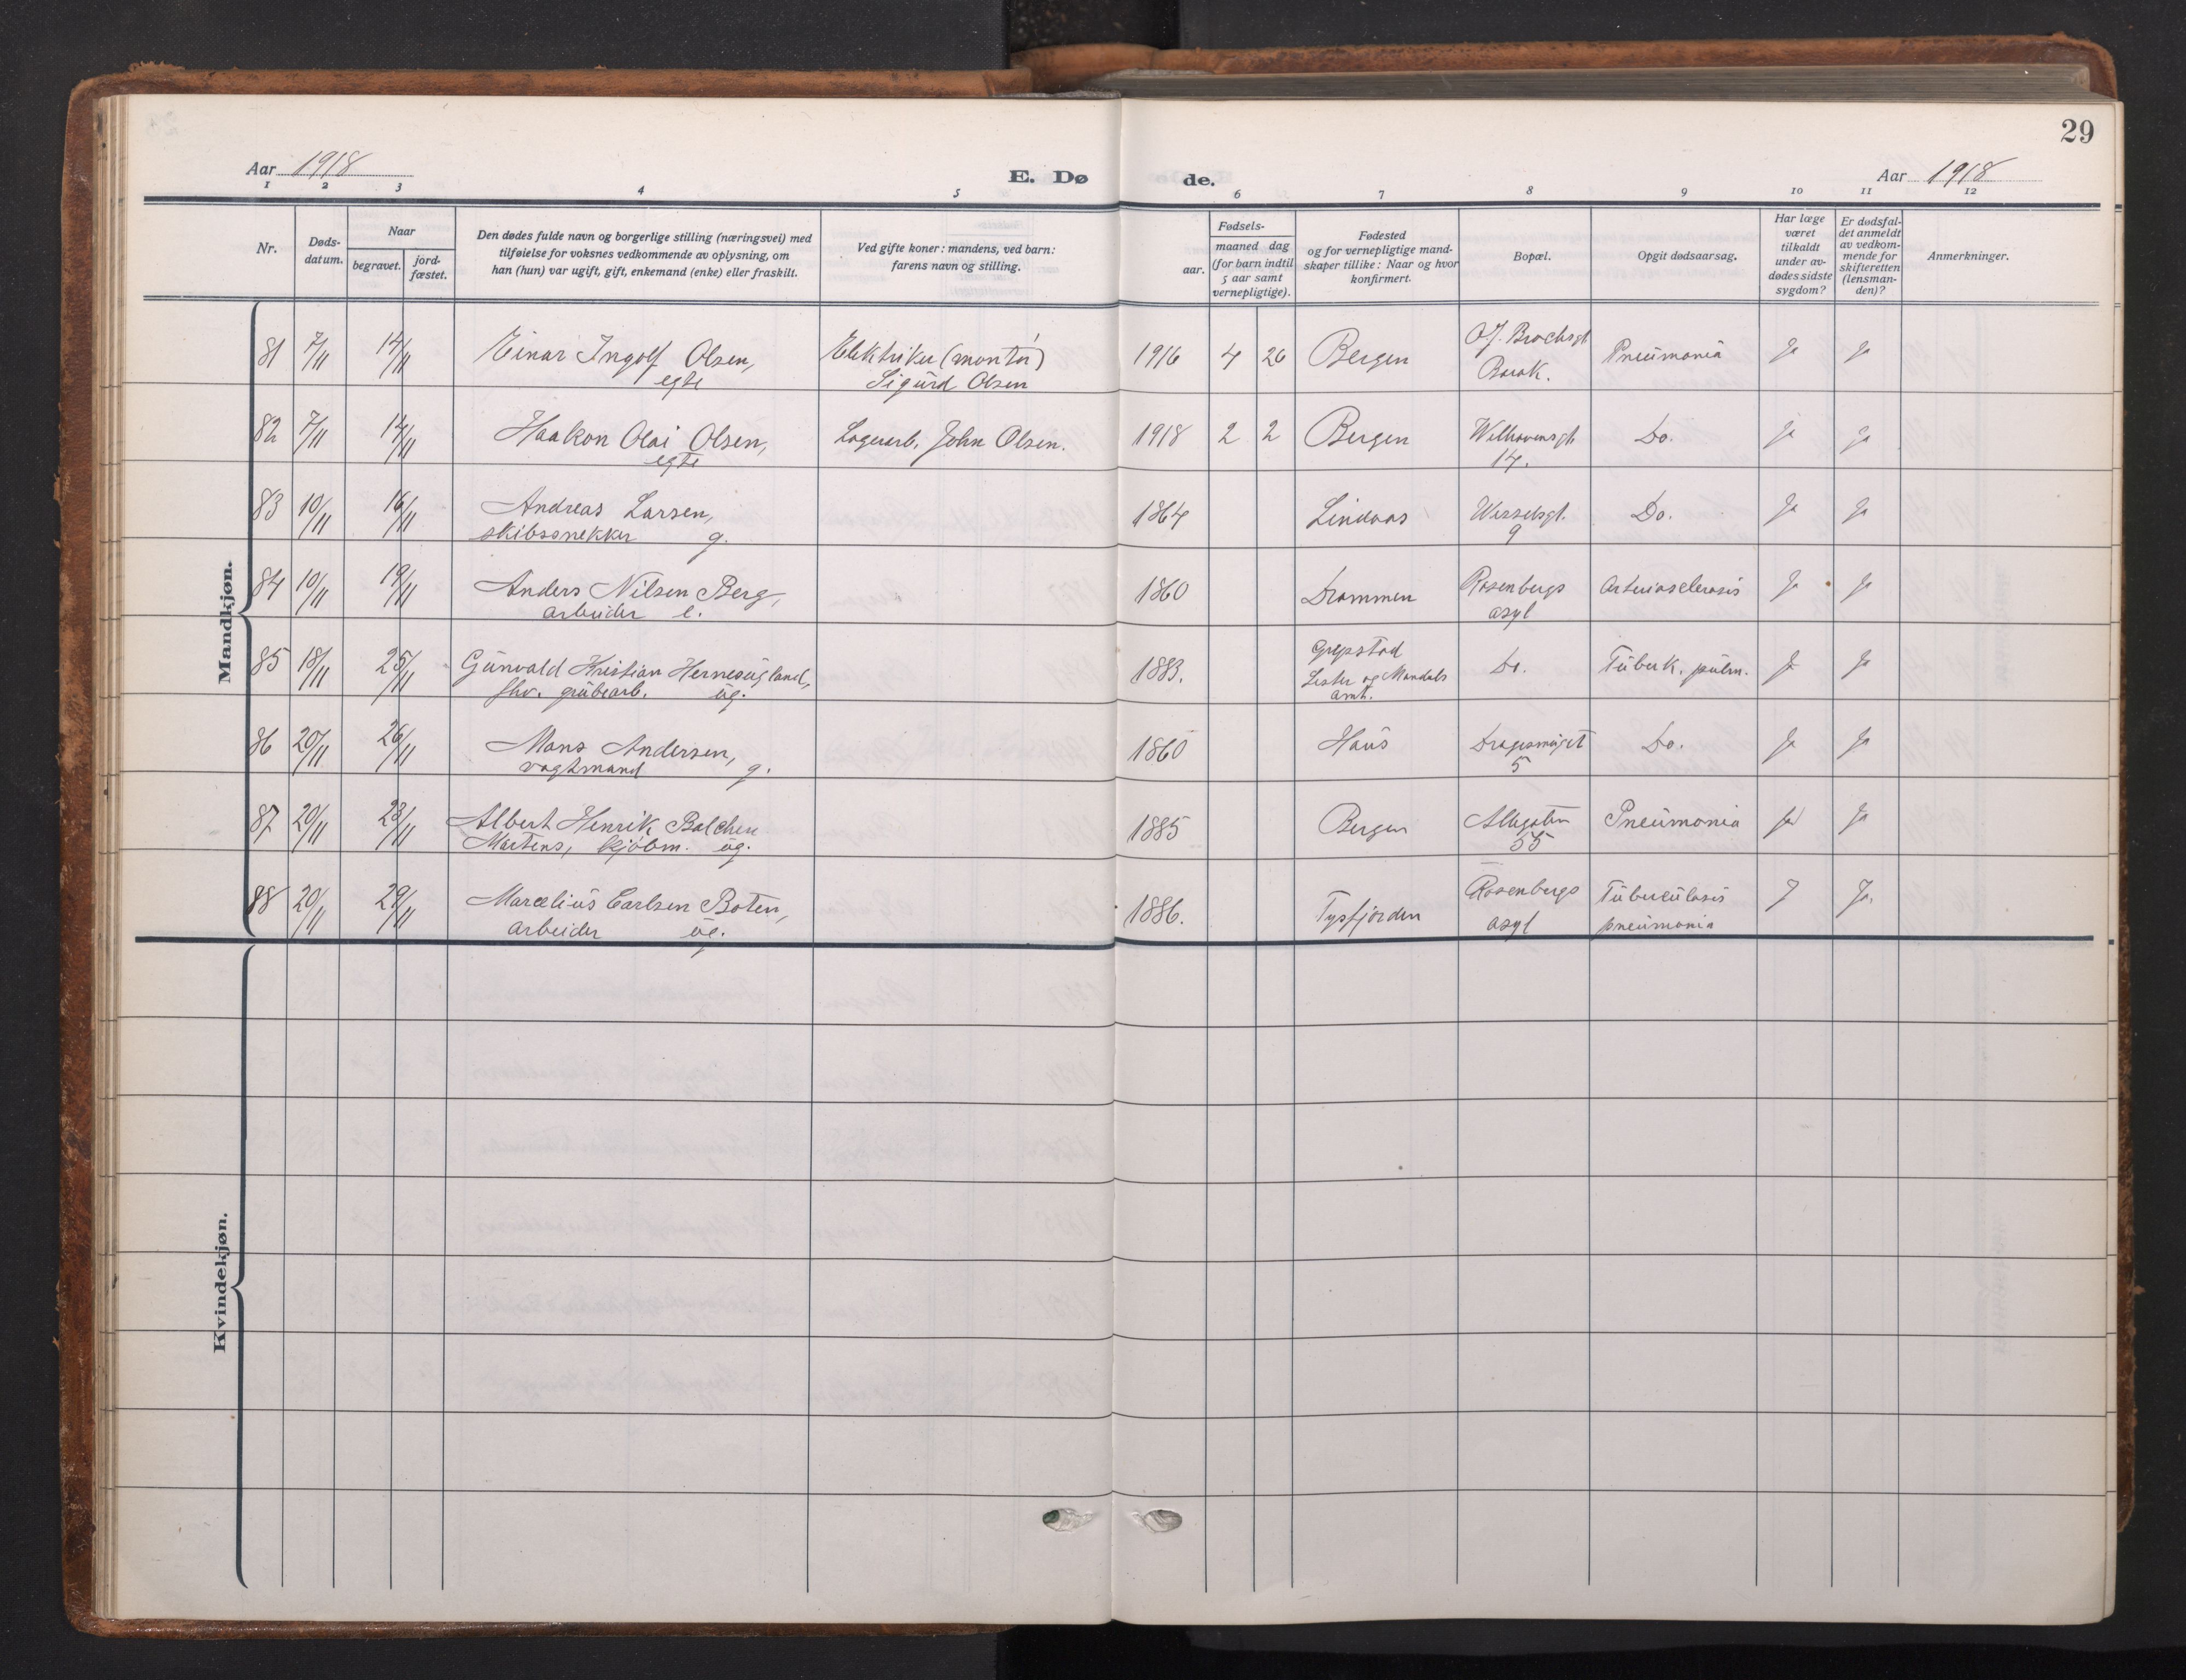 29
Aar 1918
E. Dø de.
Aar 1918
1 2 3 4 5 6 7 8 9 10 11 12
Nr.
Døds-
datum.
Naar
begravet.
jord-
fæstet.
Den dødes fulde navn og borgerlige stilling (næringsvei) med
tilføielse for voksnes vedkommende av oplysning, om
han (hun) var ugift, gift, enkemand (enke) eller fraskilt.
Ved gifte koner: mandens, ved barn:
farens navn og stilling.
aar.
Fødsels-
maaned dag
(for barn indtil
5 aar samt
vernepligtige).
Fødested
og for vernepligtige mand-
skaper tillike: Naar og hvor
konfirmert.
Bopæl.
Opgit dødsaarsag.
Har læge
været
tilkaldt
under av-
dødes sidste
sygdom?
Er dødsfal-
det anmeldt
av vedkom-
mende for
skifteretten
(lensman-
den)?
Anmerkninger.
Mandkjøn.
81 7/11 14/11 Einar Ingolf Olsen, Elektriker (montør) 1916 4 26 Bergen O.J. Brochsgt Pneumonia Ja Ja
egte Sigurd Olsen Barak.
82 7/11 14/11 Haakon Olai Olsen, Lagerarb. John Olsen. 1918 2 2 Bergen Welhavensgt. Do. Ja Ja
egte 14.
83 10/11 16/11 Andreas Larsen, 1864 Lindaas Wesselsgt. Do. Ja Ja
skibssnekker g. 9
84 10/11 19/11 Anders Nilsen Berg, 1860 Drammen Rosenbergs Arteriosclerosis Ja Ja
arbeider e. asyl
85 18/11 25/11 Gunvald Kristian Hernesugland, 1883. Grepstad Do. Tuberk. pulm. Ja Ja
fhv. grubearb. ug. Lister og Mandals
amt.
86 20/11 26/11 Mons Andersen, 1860 Haus Dragesmuget Do. Ja Ja
vagtmand g. 5
87 20/11 28/11 Albert Henrik Balchen 1885 Bergen Allegaten Pneumonia Ja Ja
Martens, kjøbm. ug. 55
88 20/11 29/11 Marcelius Carlsen Boten, 1886. Tysfjorden Rosenbergs Tuberculosis J Ja.
arbeider ug. asyl pneumonia
Kvindekjøn.